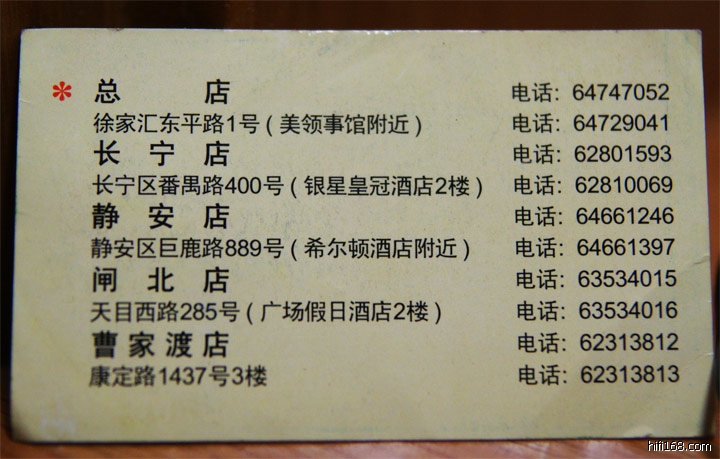 * 总 店 电话: 64747052
徐家汇东平路1号 ( 美领事馆附近 ) 电话: 64729041
长 宁 店 电话: 62801593
长宁区番禺路400号 ( 银星皇冠酒店2楼 ) 电话: 62810069
静 安 店 电话: 64661246
静安区巨鹿路889号 ( 希尔顿酒店附近 ) 电话: 64661397
闸 北 店 电话: 63534015
天目西路285号 ( 广场假日酒店2楼 ) 电话: 63534016
曹家渡店 电话: 62313812
康定路1437号3楼 电话: 62313813
hifi168.com